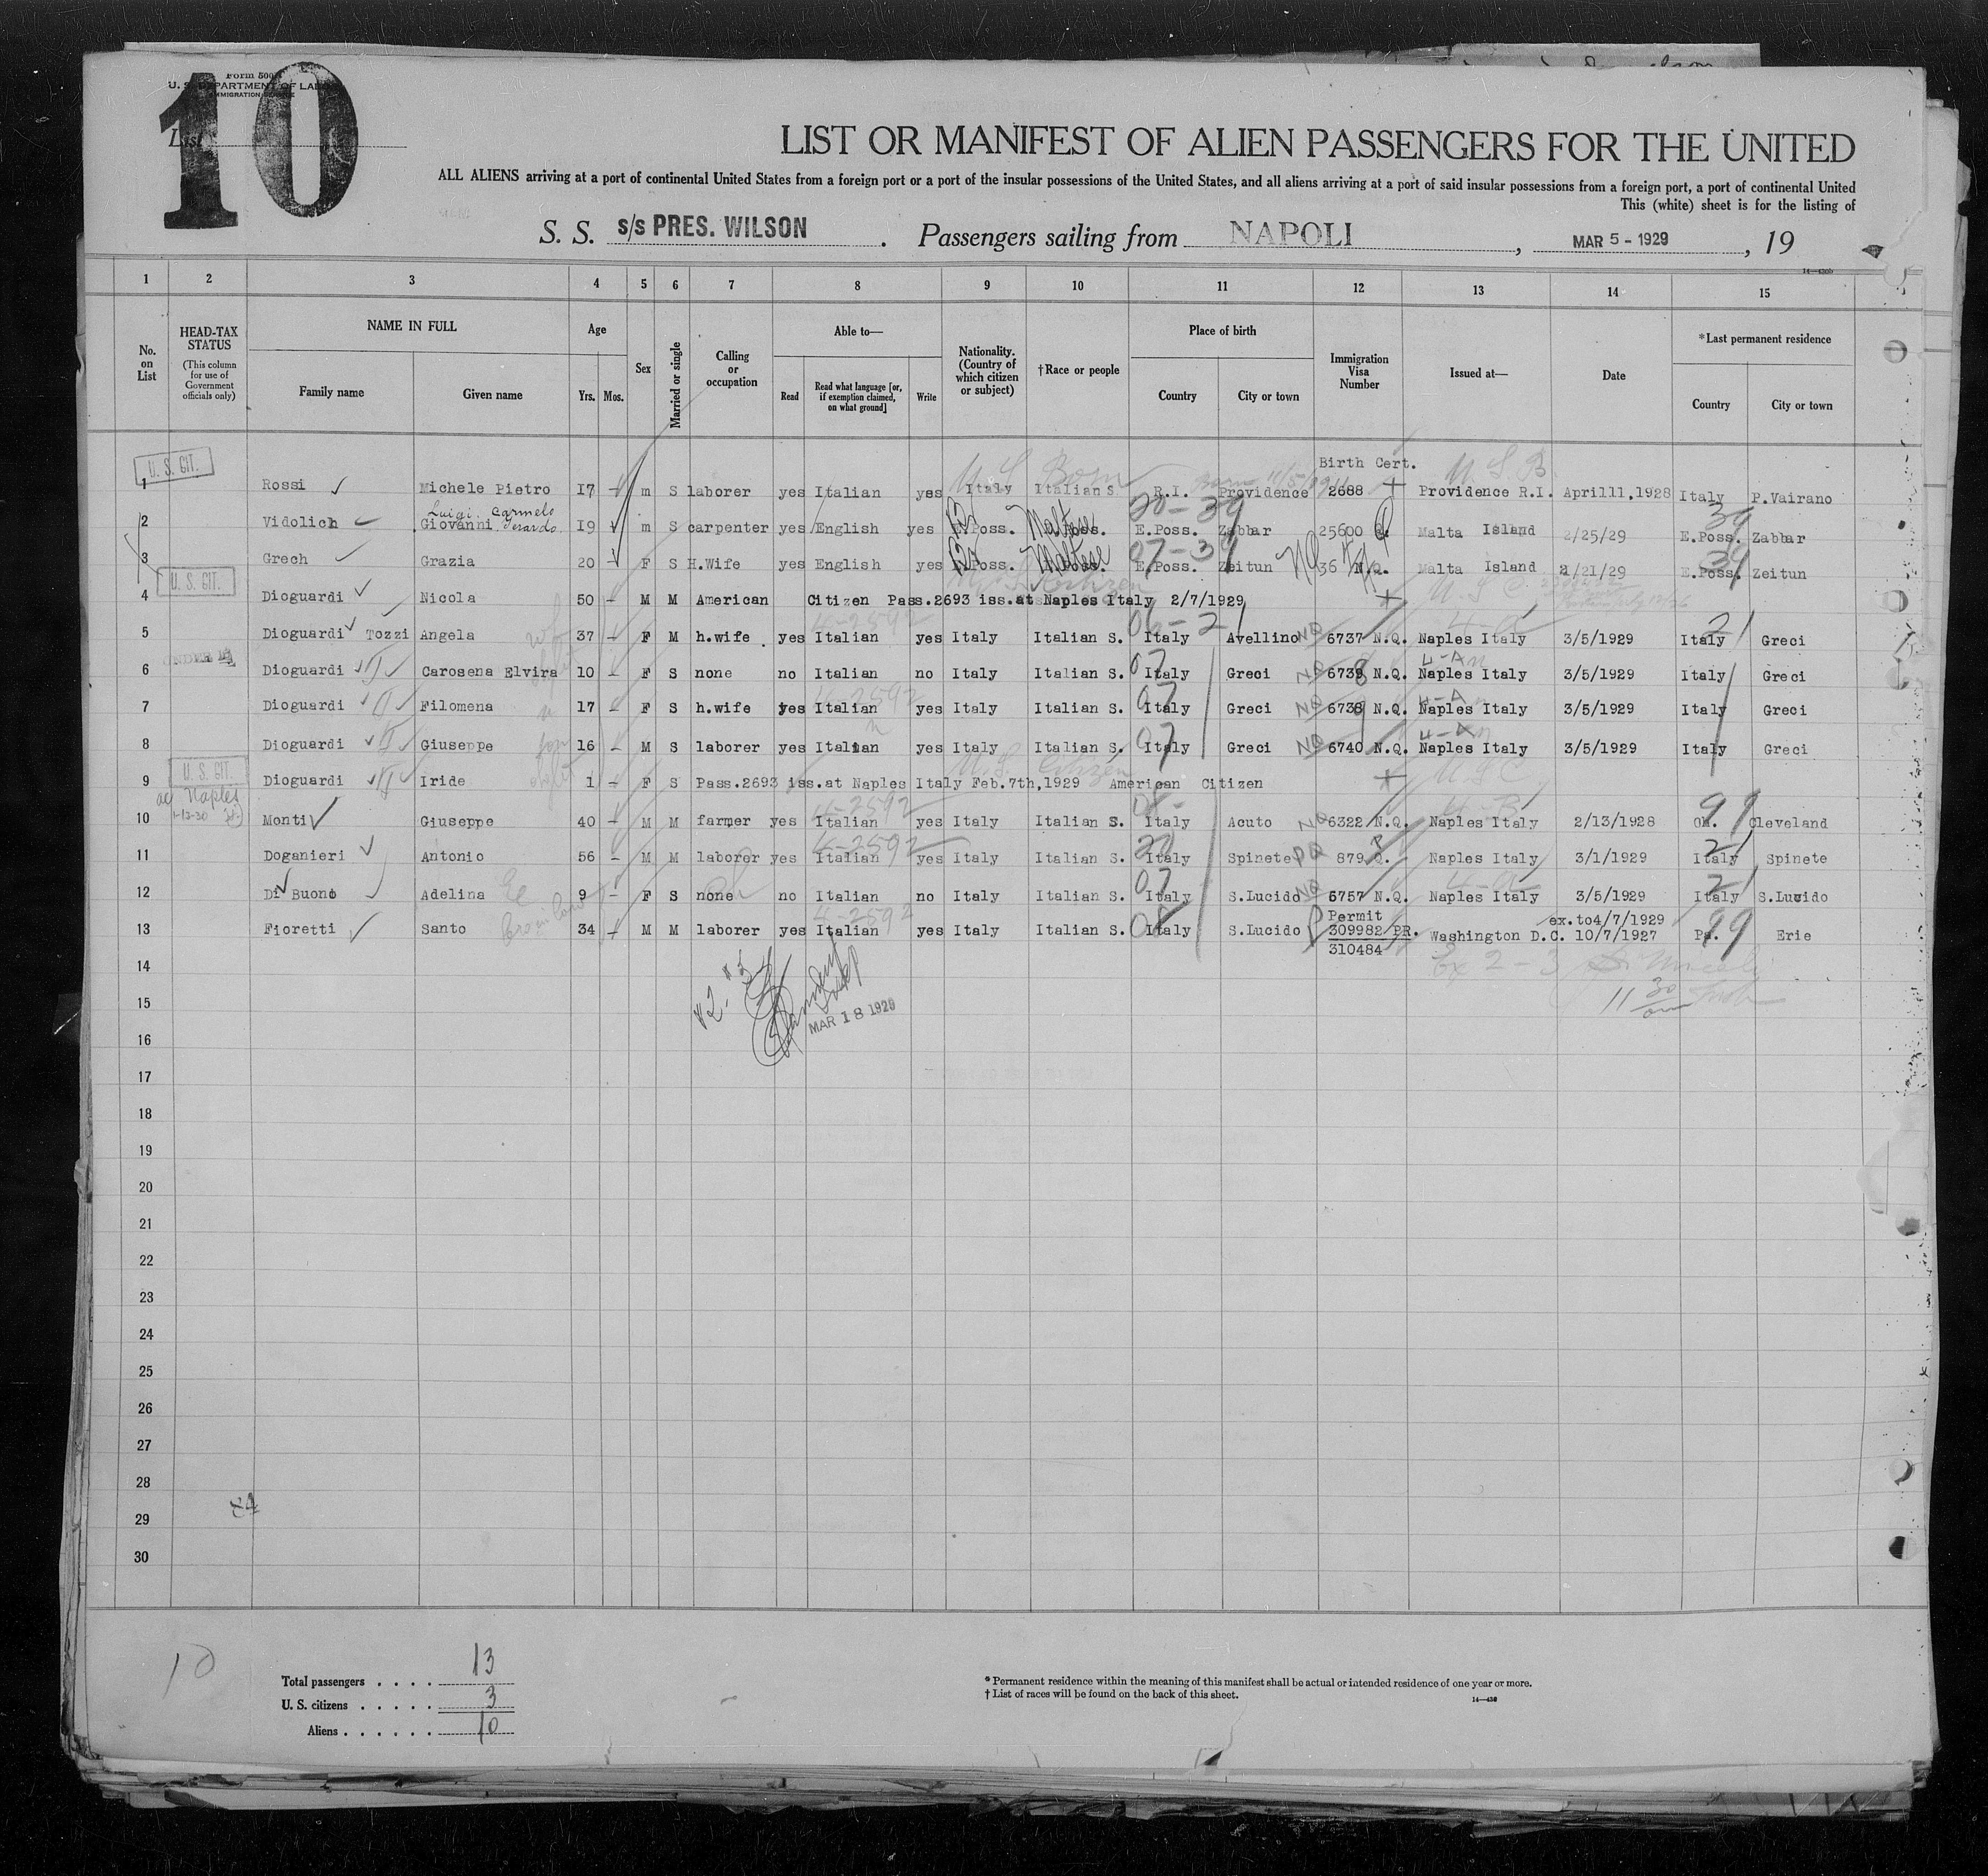 10
Form 500
U. S. DEPARTMENT OF LABOR
IMMIGRATION SERVICE
List
LIST OR MANIFEST OF ALIEN PASSENGERS FOR THE UNITED
ALL ALIENS arriving at a port of continental United States from a foreign port or a port of the insular possessions of the United States, and all aliens arriving at a port of said insular possessions from a foreign port, a port of continental United
This (white) sheet is for the listing of
S. S. s/s PRES. WILSON . Passengers sailing from NAPOLI , MAR 5 - 1929 , 19
14—430b
1 2 3 4 5 6 7 8 9 10 11 12 13 14 15
No. on List
HEAD-TAX STATUS (This column for use of Government officials only)
NAME IN FULL
Family name Given name
Age
Yrs. Mos.
Sex
Married or single
Calling or occupation
Able to—
Read Read what language [or, if exemption claimed, on what ground] Write
Nationality. (Country of which citizen or subject)
†Race or people
Place of birth
Country City or town
Immigration Visa Number
Issued at—
Date
*Last permanent residence
Country City or town
U. S. CIT. U S Born Birth Cert. U S B
1 Rossi Michele Pietro 17 m S laborer yes Italian yes Italy Italian S. R.I. Providence 2688 Providence R.I. April11,1928 Italy P.Vairano
Luigi Carmelo 20-39 39
2 Vidolich Giovanni Gerardo 19 m S carpenter yes English yes E.Poss. Maltese E.Poss. Zabbar 25600 Q. Malta Island 2/25/29 E.Poss. Zabbar
07-39 NQ 39
3 Grech Grazia 20 F S H.Wife yes English yes E.Poss. Maltese E.Poss. Zeitun 36 N.Q. Malta Island 2/21/29 E.Poss. Zeitun
U. S. CIT. U S C
4 Dioguardi Nicola 50 - M M American Citizen Pass.2693 iss.at Naples Italy 2/7/1929
4-2592 06-2 4-a 2
5 Dioguardi Tozzi Angela 37 - F M h.wife yes Italian yes Italy Italian S. Italy Avellino NQ 6737 N.Q. Naples Italy 3/5/1929 Italy Greci
UNDER 14 07 4-A
6 Dioguardi Carosena Elvira 10 - F S none no Italian no Italy Italian S. Italy Greci NQ 6739 8 N.Q. Naples Italy 3/5/1929 Italy Greci
4-2592 07 4-A
7 Dioguardi Filomena 17 - F S h.wife yes Italian yes Italy Italian S. Italy Greci NQ 6738 9 N.Q. Naples Italy 3/5/1929 Italy Greci
07 4-A
8 Dioguardi Giuseppe 16 - M S laborer yes Italian yes Italy Italian S. Italy Greci NQ 6740 N.Q. Naples Italy 3/5/1929 Italy Greci
U. S. CIT. U.S. Citizen U S C
9 Dioguardi Iride 1 - F S Pass.2693 iss.at Naples Italy Feb.7th,1929 American Citizen
Naples 1-13-30 4-2592 4-B 99
10 Monti Giuseppe 40 - M M farmer yes Italian yes Italy Italian S. Italy Acuto NQ 6322 N.Q. Naples Italy 2/13/1928 Oh. Cleveland
4-2592 20 2
11 Doganieri Antonio 56 - M M laborer yes Italian yes Italy Italian S. Italy Spinete PQ 879 Q. Naples Italy 3/1/1929 Italy Spinete
07 4-a 2
12 Di Buono Adelina 9 - F S none no Italian no Italy Italian S. Italy S.Lucido NQ 6757 N.Q. Naples Italy 3/5/1929 Italy S.Lucido
4-2592 08 Permit ex.to4/7/1929 99
13 Fioretti Santo 34 - M M laborer yes Italian yes Italy Italian S. Italy S.Lucido 309982 PR. Washington D.C. 10/7/1927 Pa. Erie
310484
14
15 MAR 18 1929
16
17
18
19
20
21
22
23
24
25
26
27
28
29
30
10
Total passengers . . . . 13
U. S. citizens . . . . . 3
Aliens . . . . . . 10
* Permanent residence within the meaning of this manifest shall be actual or intended residence of one year or more.
† List of races will be found on the back of this sheet.
14—430